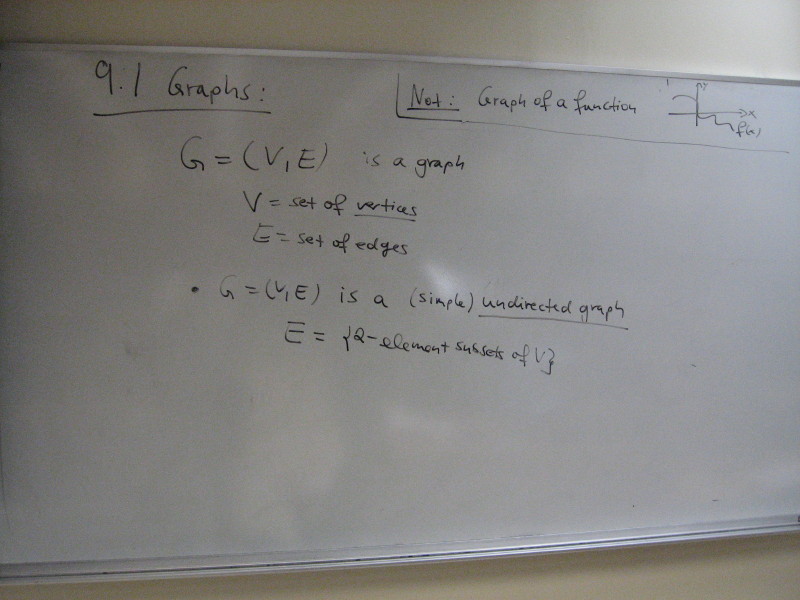 9.1 Graphs:
Not: Graph of a function
y
x
f(x)
G = (V, E) is a graph
V = set of vertices
E = set of edges
• G = (V, E) is a (simple) undirected graph
E = {2-element subsets of V}